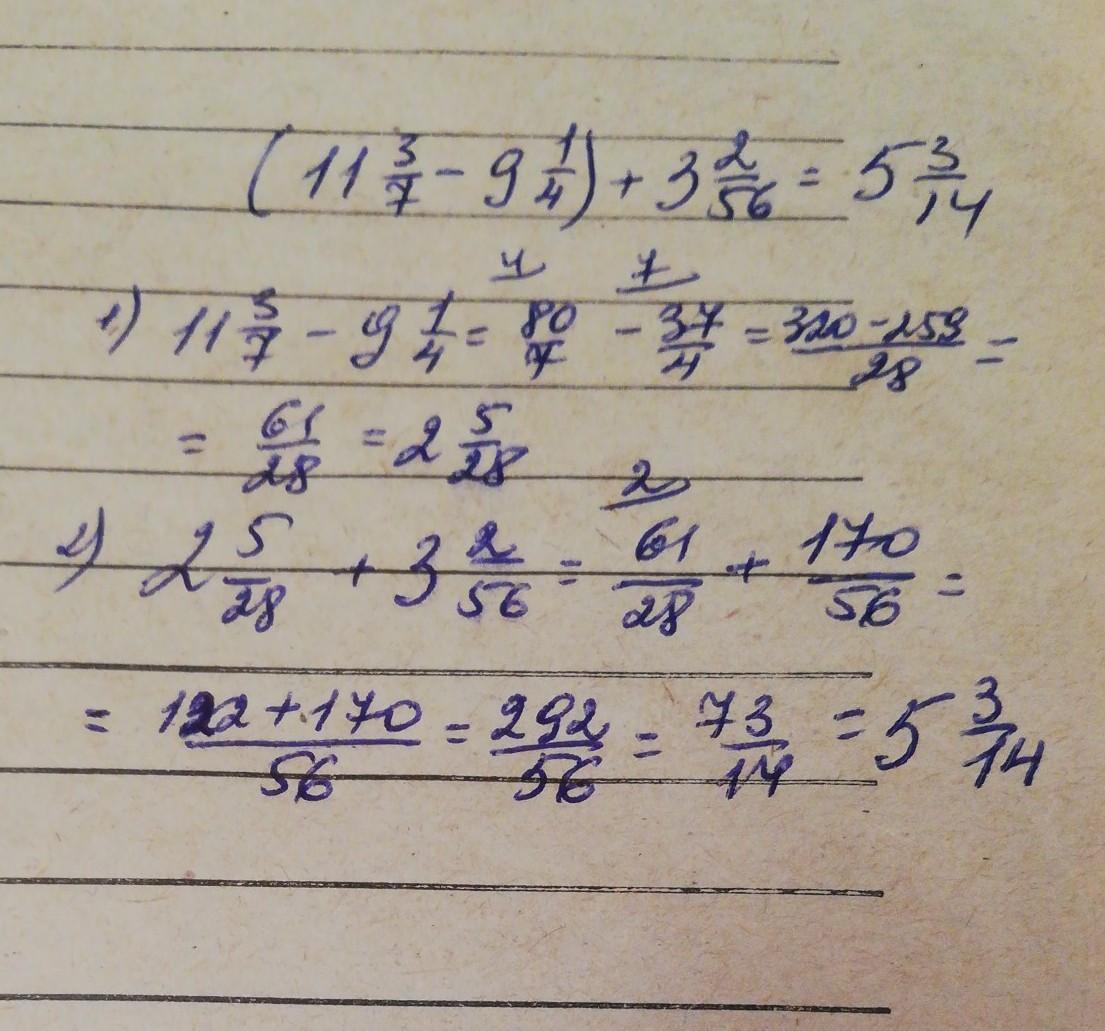 (11 3/7 - 9 1/4) + 3 2/56 = 5 3/14
1) 11 3/7 - 9 1/4 = 80/7 (4) - 37/4 (7) = 320-259/28 =
= 61/28 = 2 5/28
2) 2 5/28 + 3 2/56 = 61/28 (2) + 170/56 =
= 122+170/56 = 292/56 = 73/14 = 5 3/14